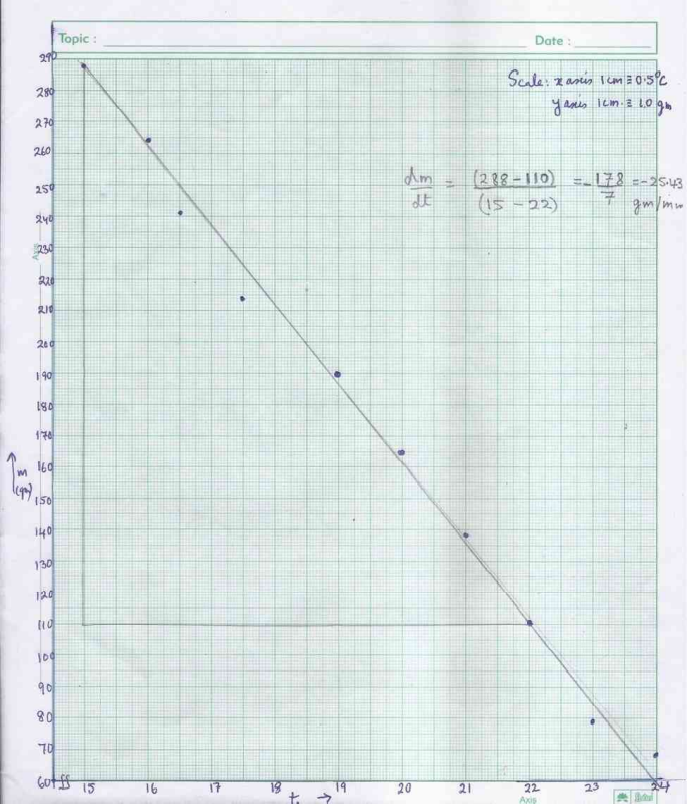 Topic :
Date :
Scale: x axis 1cm ≡ 0.5°C
y axis 1cm. ≡ 10 gm
dm/dt = (288 - 110)/(15 - 22) = -178/7 = -25.43 gm/min
290
280
270
260
250
240
230
220
210
200
190
180
170
160
150
140
130
120
110
100
90
80
70
60
Axis
↑ m (gm)
15 16 17 18 19 20 21 22 23 24
t. →
Axis